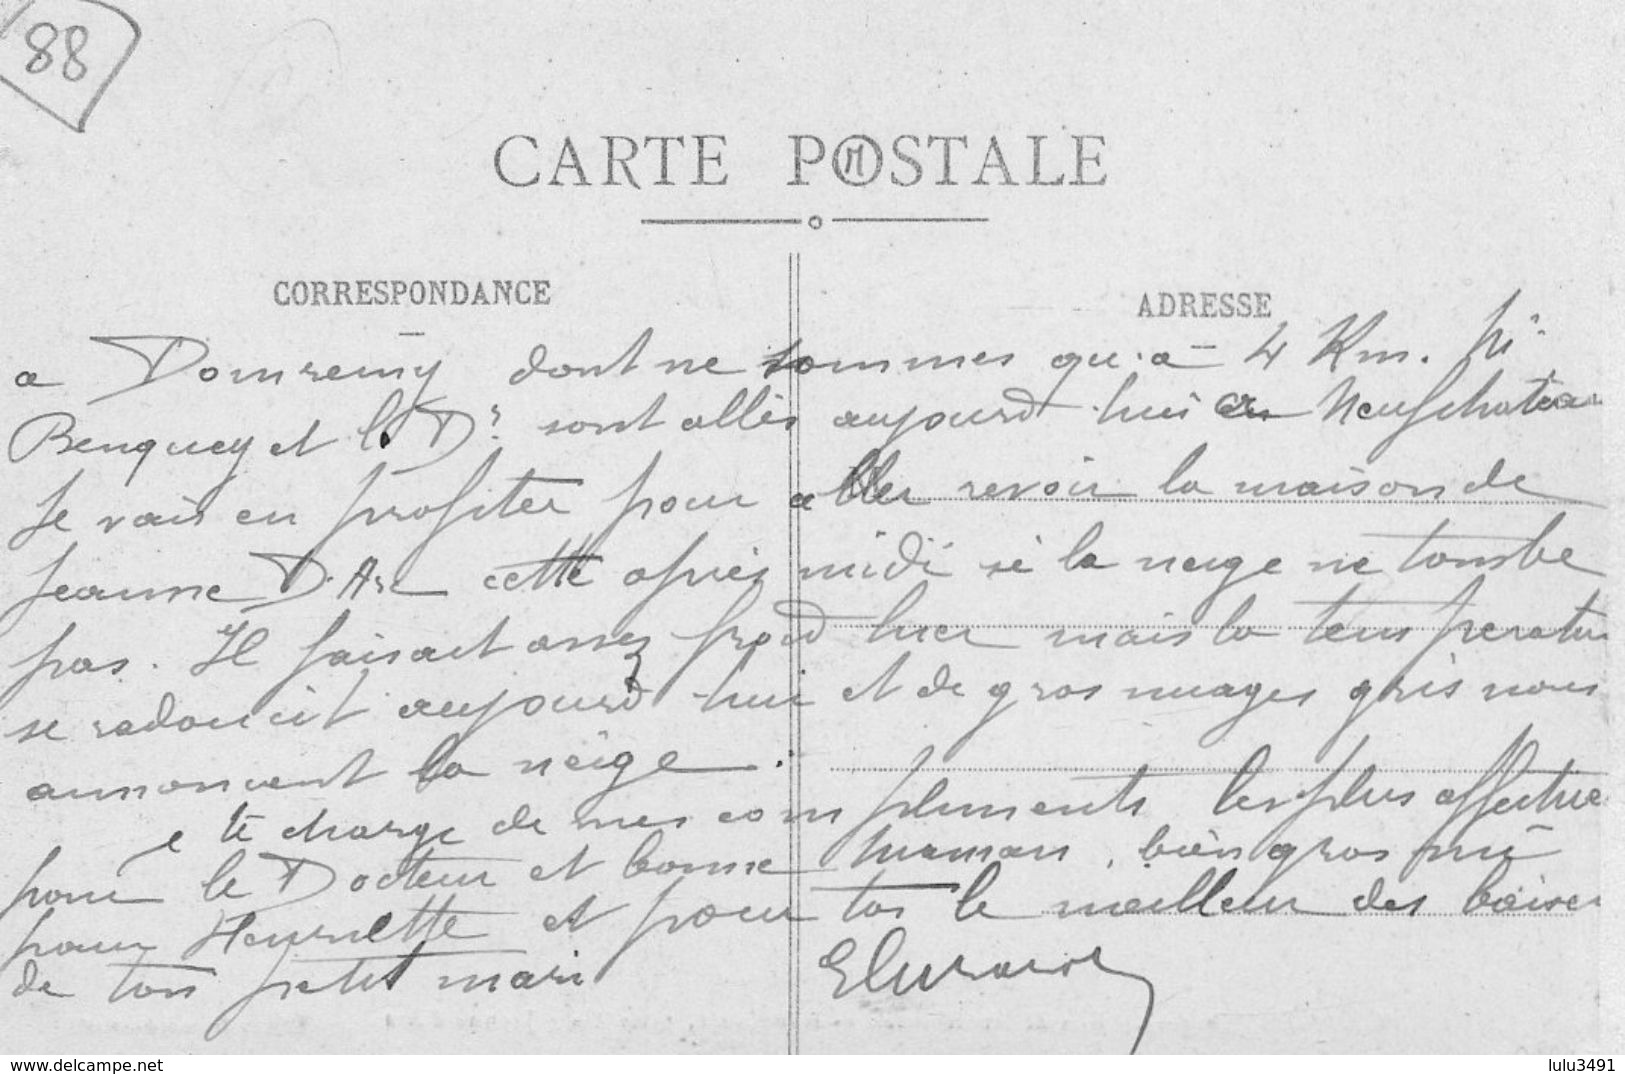 88
CARTE POSTALE
CORRESPONDANCE
ADRESSE
a Domremy dont ne sommes qu'a 4 Km. Mr
Benquey et le Dr sont allés aujourd'hui a Neufchateau
Je vais en profiter pour aller revoir la maison de
Jeanne D'Arc cette après midi si la neige ne tombe
pas. Il faisait assez froid hier mais la temperatur
se radoucit aujourd'hui et de gros nuages gris nous
annoncent la neige.
Je te charge de mes compliments les plus affectueu
pour le Docteur et bonne maman, bien gros
pour Henriette et pour toi le meilleur des baiser
de ton petit mari
www.delcampe.net
lulu3491